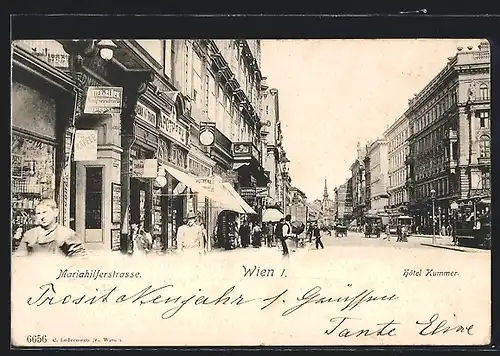 Mariahilferstrasse.
Wien I.
Hôtel Kummer.
Prosit Neujahr u. Grüssen
Tante Elise
6656 C. Ledermann jr. Wien I.